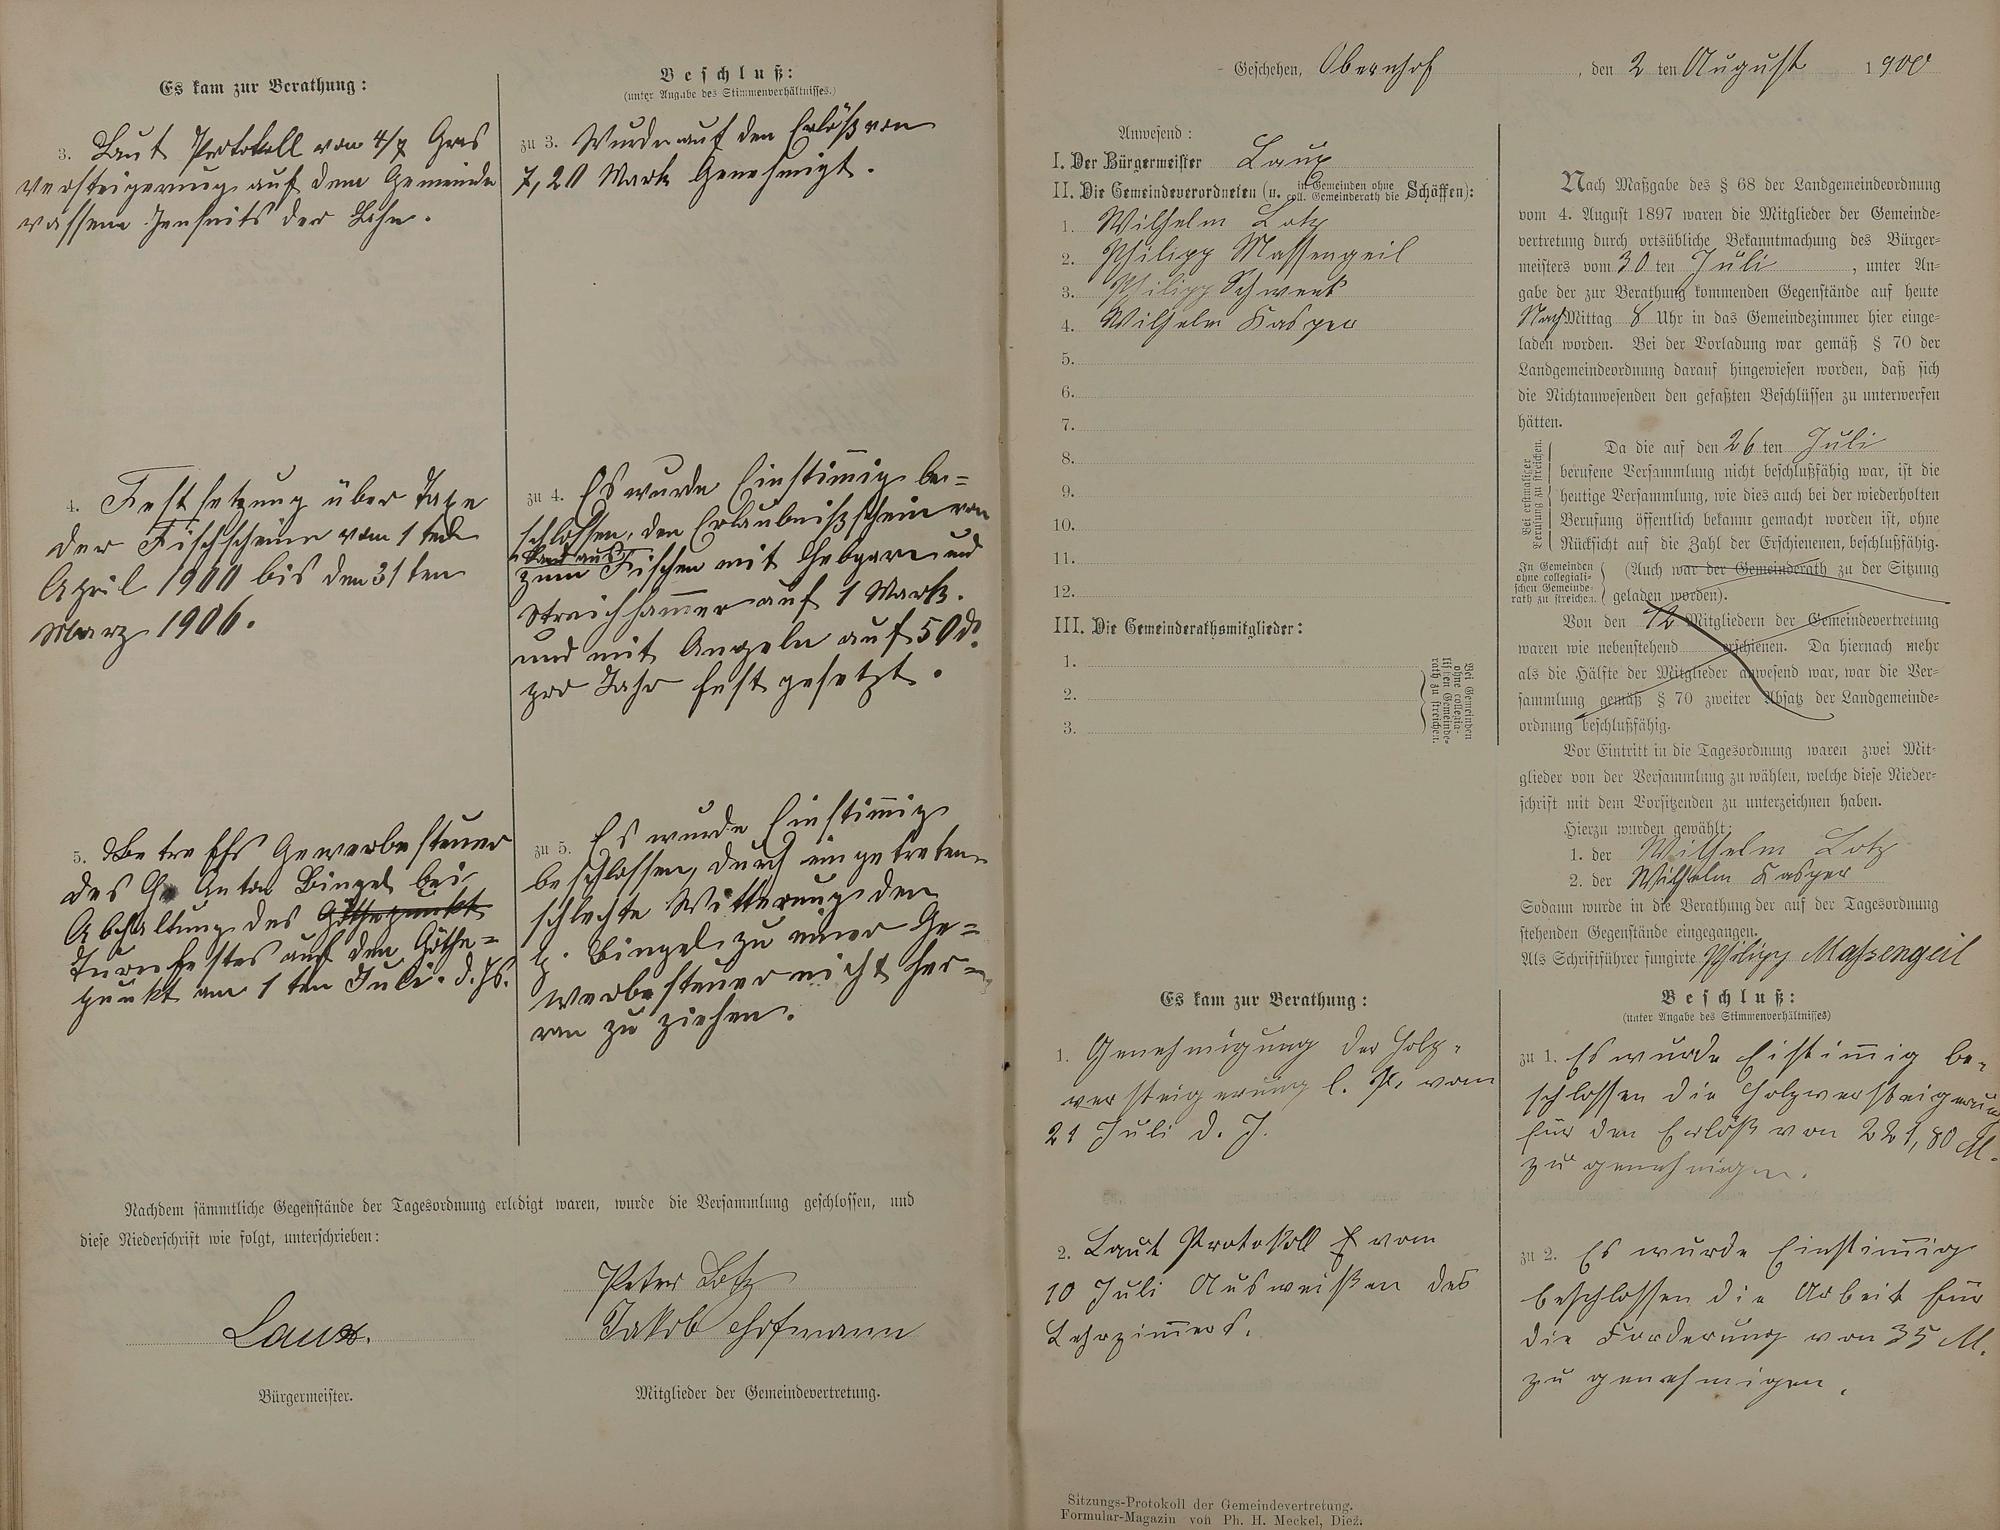 Es kam zur Berathung:
3. Laut Protokoll vom 4/7 Gras
versteigerung auf dem Gemeinde
wassem Jenseits der Lahn.
4. Festsetzung über Taxe
der Fischscheine vom 1 ten
April 1900 bis den 31 ten
Marz 1906.
5. Betreffs Gewerbesteuer
des Anton Bingel bei
Abhaltung des Göthepunkt
Turnfestes auf dem Göthe=
punkt am 1 ten Juli. d. Js.
Beschluß:
(unter Angabe des Stimmenverhältnisses.)
zu 3. Wurde auf den Erlöß von
7,20 Mark Genehmigt.
zu 4. Es wurde Einstimmig be=
schlossen, den Erlaubnißschein von
Land aus
zum Fischen mit Hebgarn und
Streichhammer auf 1 Mark.
und mit Angeln auf 50 d.
pro Jahr fest gesetzt.
zu 5. Es wurde Einstimmig
beschlossen, durch eingetretene
schlechte Witterung den
H. Bingel zu einer Ge=
werbesteuer nicht her=
ran zu ziehen.
Nachdem sämmtliche Gegenstände der Tagesordnung erledigt waren, wurde die Versammlung geschlossen, und
diese Niederschrift wie folgt, unterschrieben:
Peter Lotz
Laux.
Jakob Hofmann
Bürgermeister.
Mitglieder der Gemeindevertretung.
Geschehen, Obernhof, den 2 ten August 1900
Anwesend:
I. Der Bürgermeister Laux
II. Die Gemeindeverordneten (u. in Gemeinden ohne coll. Gemeinderath die Schöffen):
1. Wilhelm Lotz
2. Philipp Massengeil
3. Philipp Schwenk
4. Wilhelm Kasper
5.
6.
7.
8.
9.
10.
11.
12.
III. Die Gemeinderathsmitglieder:
1.
2.
3.
Bei Gemeinden
ohne collegia-
lischen Gemeinde-
rath zu streichen.
Nach Maßgabe des § 68 der Landgemeindeordnung
vom 4. August 1897 waren die Mitglieder der Gemeinde-
vertretung durch ortsübliche Bekanntmachung des Bürger-
meisters vom 30 ten Juli, unter An-
gabe der zur Berathung kommenden Gegenstände auf heute
Nach Mittag 8 Uhr in das Gemeindezimmer hier einge-
laden worden. Bei der Vorladung war gemäß § 70 der
Landgemeindeordnung darauf hingewiesen worden, daß sich
die Nichtanwesenden den gefaßten Beschlüssen zu unterwerfen
hätten.
Bei erstmaliger
Berufung zu streichen.
Da die auf den 26 ten Juli
berufene Versammlung nicht beschlußfähig war, ist die
heutige Versammlung, wie dies auch bei der wiederholten
Berufung öffentlich bekannt gemacht worden ist, ohne
Rücksicht auf die Zahl der Erschienenen, beschlußfähig.
In Gemeinden
ohne collegiali-
schen Gemeinde-
rath zu streichen.
(Auch war der Gemeinderath zu der Sitzung
geladen worden).
Von den 12 Mitgliedern der Gemeindevertretung
waren wie nebenstehend erschienen. Da hiernach mehr
als die Hälfte der Mitglieder anwesend war, war die Ver-
sammlung gemäß § 70 zweiter Absatz der Landgemeinde-
ordnung beschlußfähig.
Vor Eintritt in die Tagesordnung waren zwei Mit-
glieder von der Versammlung zu wählen, welche diese Nieder-
schrift mit dem Vorsitzenden zu unterzeichnen haben.
Hierzu wurden gewählt
1. der Wilhelm Lotz
2. der Wilhelm Kasper
Sodann wurde in die Berathung der auf der Tagesordnung
stehenden Gegenstände eingegangen.
Als Schriftführer fungirte Philipp Massengeil
Es kam zur Berathung:
1. Genehmigung der Holz-
versteigerung l. P. vom
21 Juli d. J.
2. Laut Protokoll vom
10 Juli Ausweißen des
Lehrzimmers.
Beschluß:
(unter Angabe des Stimmenverhältnisses)
zu 1. Es wurde Eistimmig be-
schlossen die Holzversteigerung
für den Erlöß von 221,80 M.
zu genehmigen.
zu 2. Es wurde Einstimmig
beschlossen die Arbeit für
die Forderung von 35 M.
zu genehmigen.
Sitzungs-Protokoll der Gemeindevertretung.
Formular-Magazin von Ph. H. Meckel, Diez.